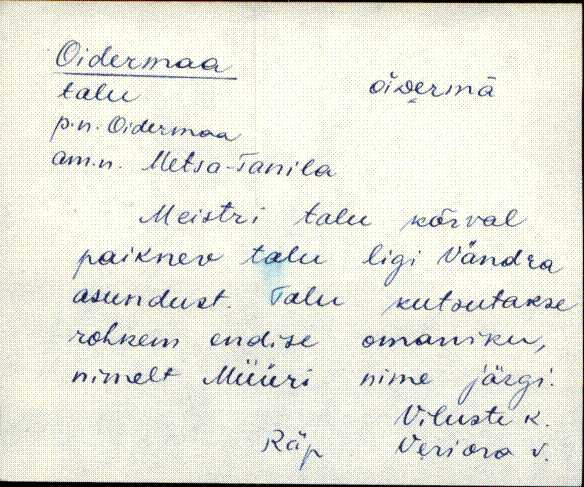 Oidermaa
talu
õìdermā
p.n. Oidermaa
am.n. Metsa-Tanila
Meistri talu kõrval
paiknev talu ligi Vändra
asundust. Talu kutsutakse
rohkem endise omaniku,
nimelt Müüri nime järgi.
Viluste k.
Räp Veriora v.